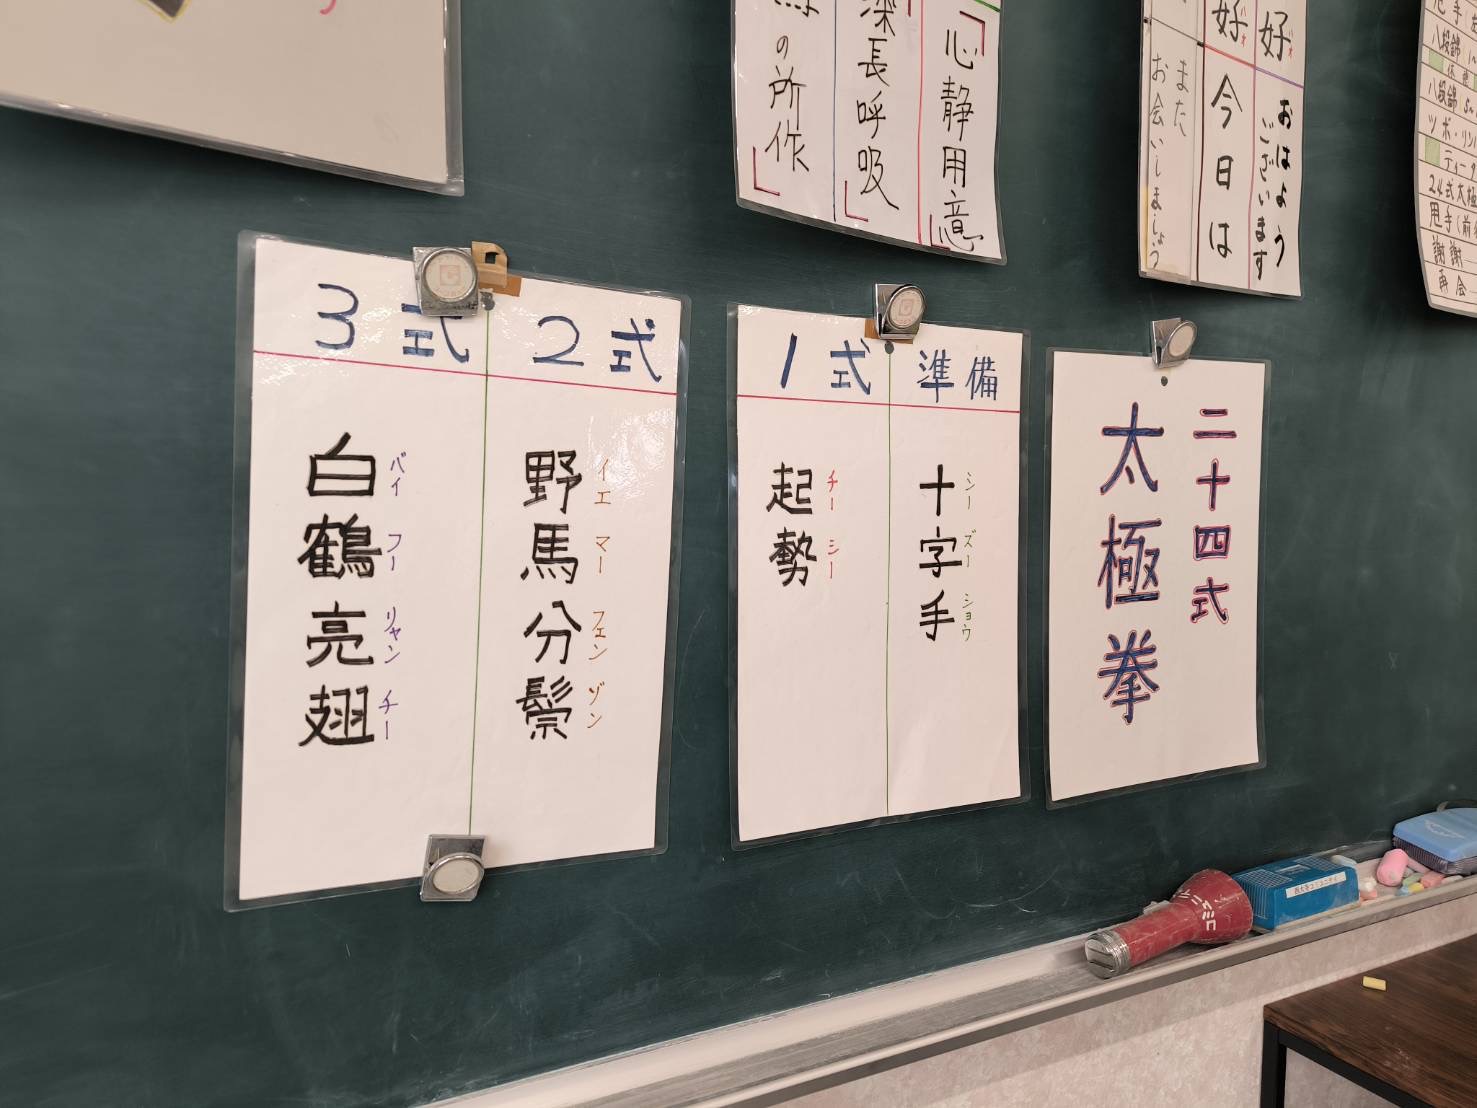 好 おはようございます
好 今日は
またお会いしましょう
「心静用意」
深長呼吸」
の所作」
八段錦
八段錦
24式太極
甩手(前
謝謝
再会
二十四式
太極拳
準備
十字手
シーズーショウ
1式
起勢
チーシー
2式
野馬分鬃
イエマーフェンゾン
3式
白鶴亮翅
バイフーリャンチー